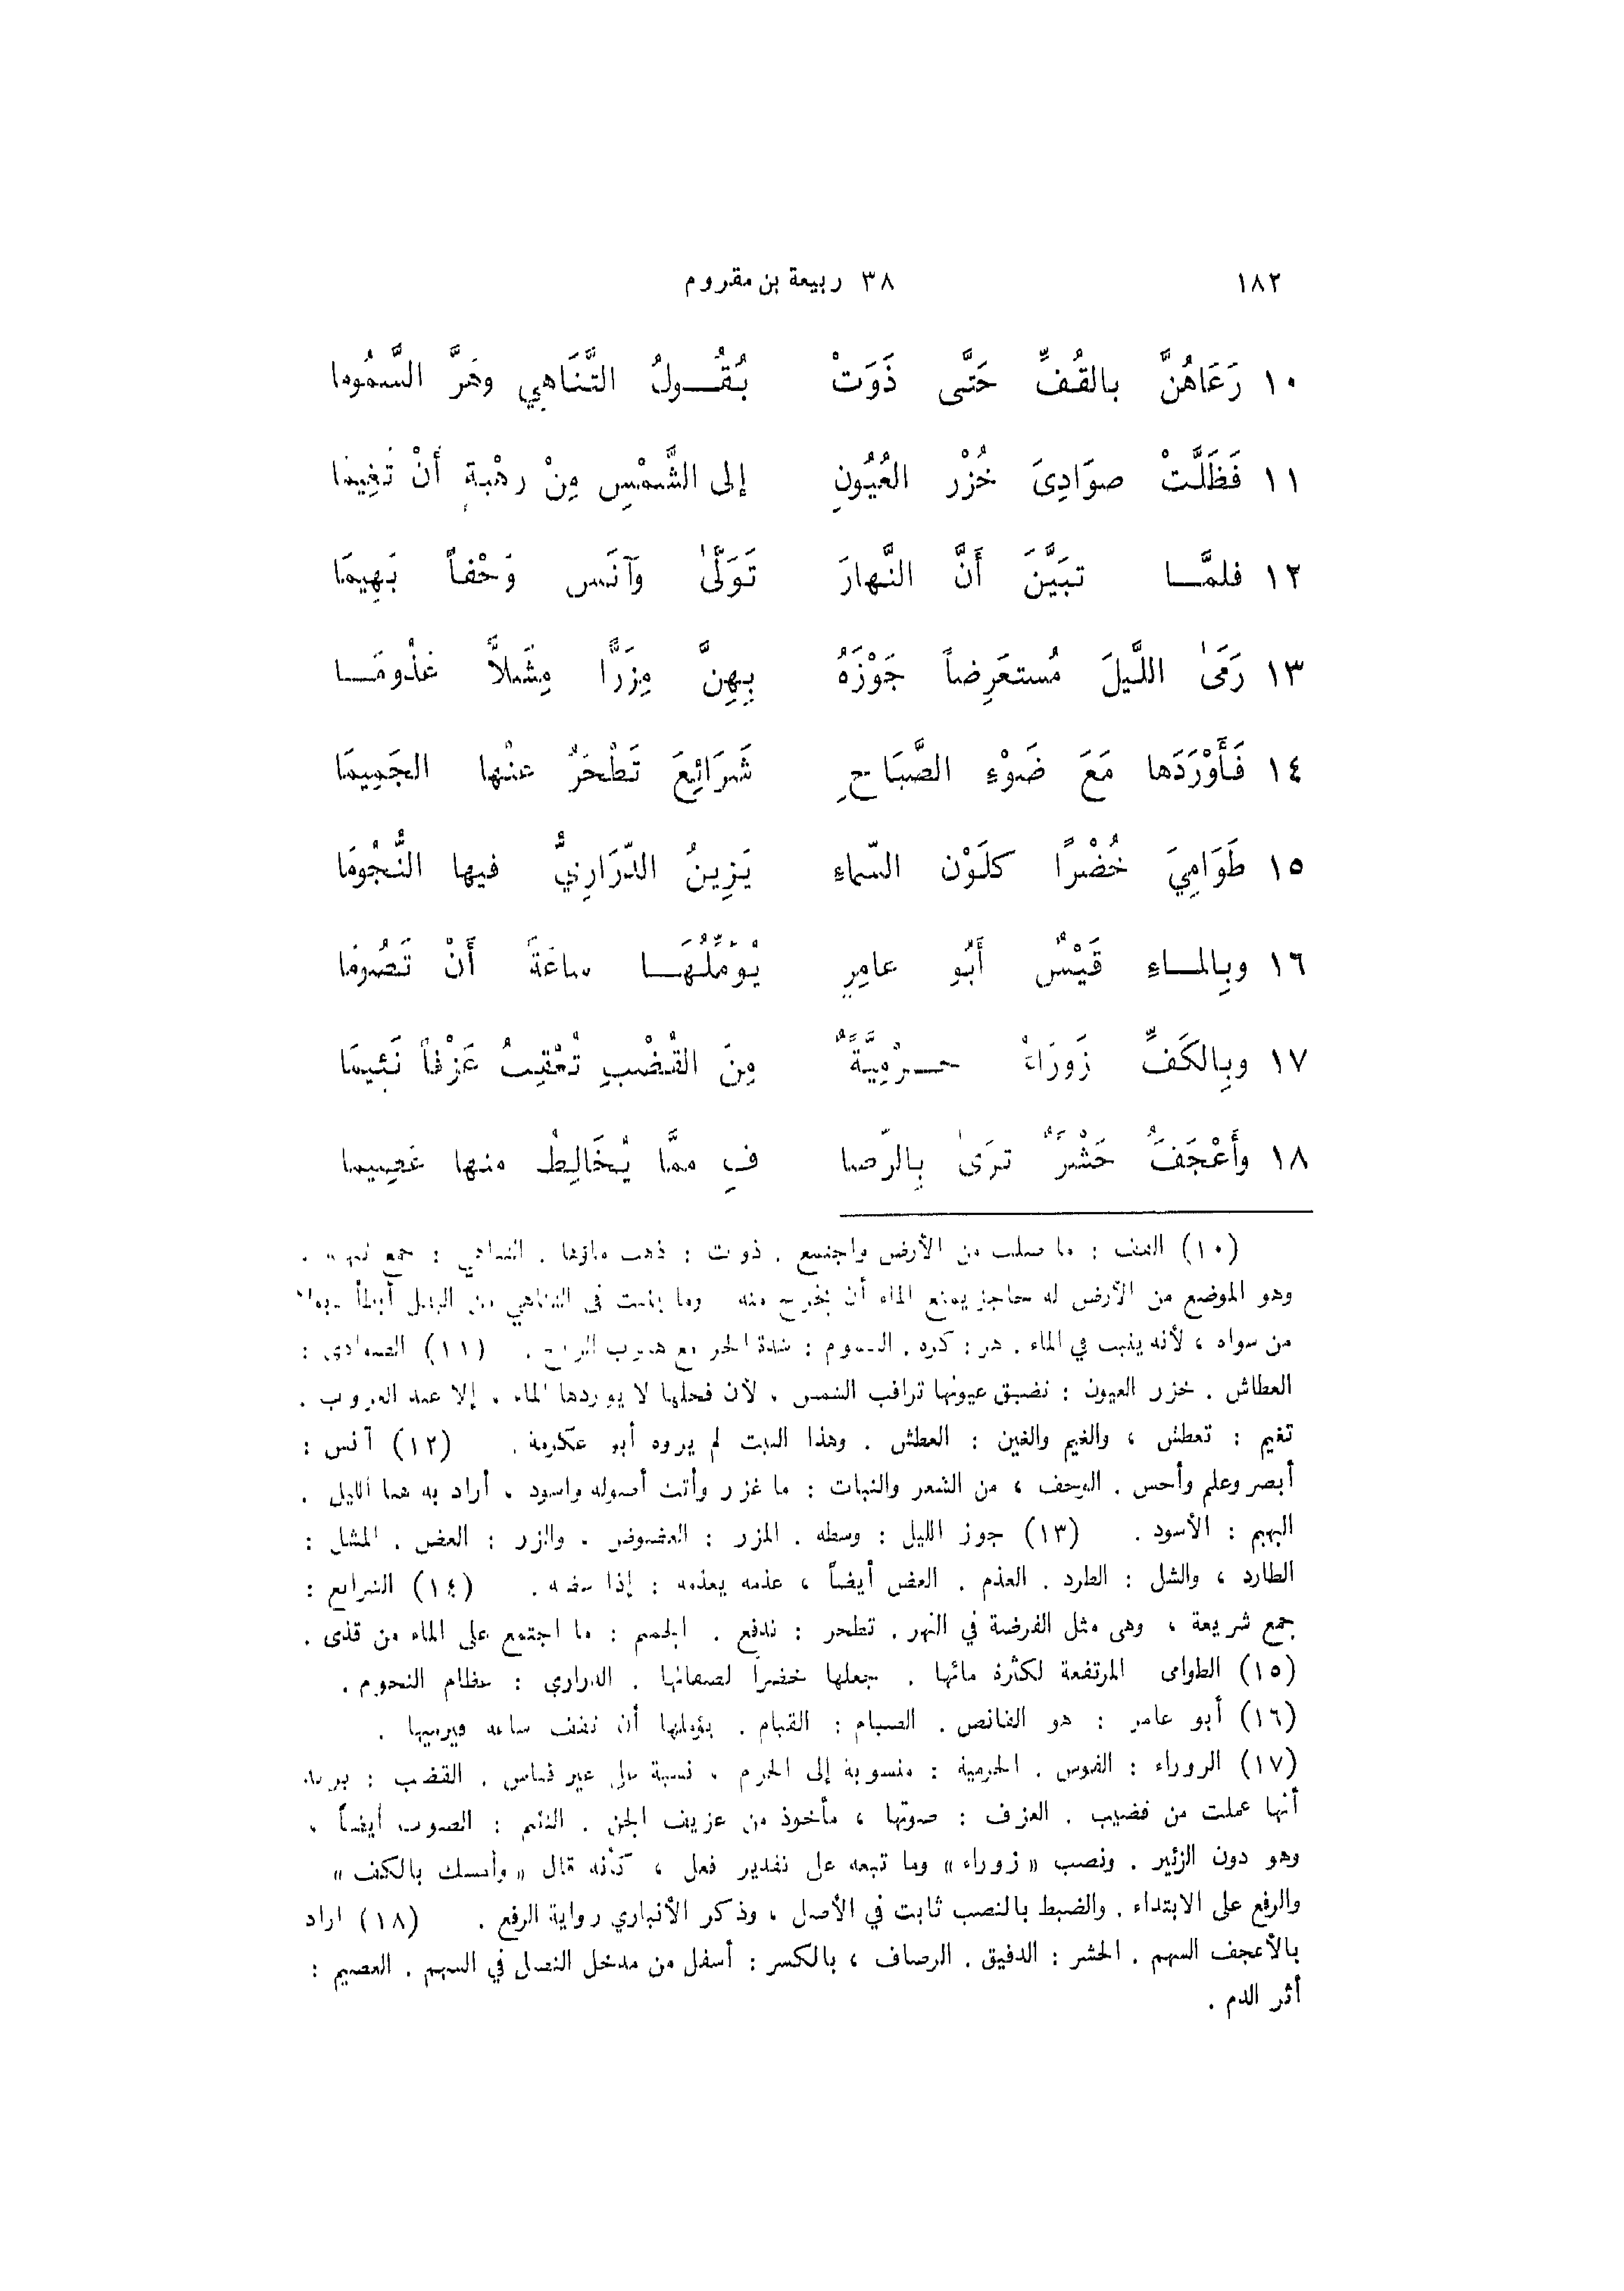 ١٨٢ ٣٨ ربيعة بن مقروم
١٠ رَعَاهُنَّ بالقُفِّ حَتَّى ذَوَتْ بُقُولُ التَّنَاهِي وهَرَّ السَّمُوما
١١ فَظَلَّتْ صوَادِىَ خُزْر العُيُونِ إلى الشَّمْسِ مِنْ رهْبةٍ أَنْ تَغِيمَا
١٢ فلمَّا تبَيَّنَ أَنَّ النَّهارَ تَوَلَّىٰ وَآنَس وَحْفاً بَهِيمَا
١٣ رَمَىٰ اللَّيلَ مُستعَرِضاً جَوْزَهُ بِهِنَّ مِزَرًّا مِشَلاًّ عَذُومَا
١٤ فَأَوْرَدَها مَعَ ضَوْءِ الصَّبَاحِ شَرَائِعَ تَطْحَرُ عنْها الجَمِيمَا
١٥ طَوَامِيَ خُضْرًا كلَوْن السَّماءِ يَزِينُ الدَّرَارِيُّ فيها النُّجُومَا
١٦ وبِالماءِ قَيْسٌ أَبُو عامِرٍ يُؤَمِّلُهَا ساعَةً أَنْ تَصُومَا
١٧ وبِالكَفِّ زَورَاءُ حرْمِيَّةٌ مِنَ القُضْبِ تُعْقِبُ عَزْفاً نَئِيمَا
١٨ وأَعْجَفُ حَشْرٌ ترَىٰ بِالرِّصا فِ ممَّا يُخَالِطُ منها عَصِيما
(١٠) القف : ما صلب من الأرض واجتمع . ذوت : ذهب ماؤها . التناهي : جمع تنهية .
وهو الموضع من الأرض له حاجز يمنع الماء أن يخرج منه وما ينبت فى التناهي من البقل أبطأ
من سواه ، لأنه ينبت في الماء . هر : كره . السموم : شدة الحر مع هبوب الريح . (١١) الصوادى :
العطاش . خزر العيون : تضيق عيونها تراقب الشمس ، لأن فحلها لا يوردها الماء ، إلا عند الغروب .
تغيم : تعطش ، والغيم والغين : العطش . وهذا البيت لم يروه أبو عكرمة . (١٢) آنس :
أبصر وعلم وأحس . الوحف ، من الشعر والنبات : ما غزر وأثت أصوله واسود ، أراد به هنا الليل .
البهيم : الأسود . (١٣) جوز الليل : وسطه . المزر : العضوض . والزر : العض . المشل :
الطارد ، والشل : الطرد . العذم . العض أيضاً ، عذمه يعذمه : إذا عضه . (١٤) الشرايع :
جمع شريعة ، وهى مثل الفرضة في النهر . تطحر : تدفع . الجميم : ما اجتمع على الماء من قذى .
(١٥) الطوامى المرتفعة لكثرة مائها . جعلها خضراً لصفائها . الدراري : عظام النجوم .
(١٦) أبو عامر : هو القانص . الصيام : القيام . يؤملها أن تقف ساعه فيرميها .
(١٧) الزوراء : القوس . الحرمية : منسوبة إلى الحرم ، نسبة على غير قياس . القضب : يريد
أنها عملت من قضيب . العزف : صوتها ، مأخوذ من عزيف الجن . النئيم : الصوت أيضاً ،
وهو دون الزئير . ونصب « زوراء » وما تبعه على تقدير فعل ، كأنه قال « وأمسك بالكف »
والرفع على الابتداء . والضبط بالنصب ثابت في الأصل ، وذكر الأنباري رواية الرفع . (١٨) اراد
بالأعجف السهم . الحشر : الدقيق . الرصاف ، بالكسر : أسفل من مدخل النصل في السهم . العصيم :
أثر الدم .